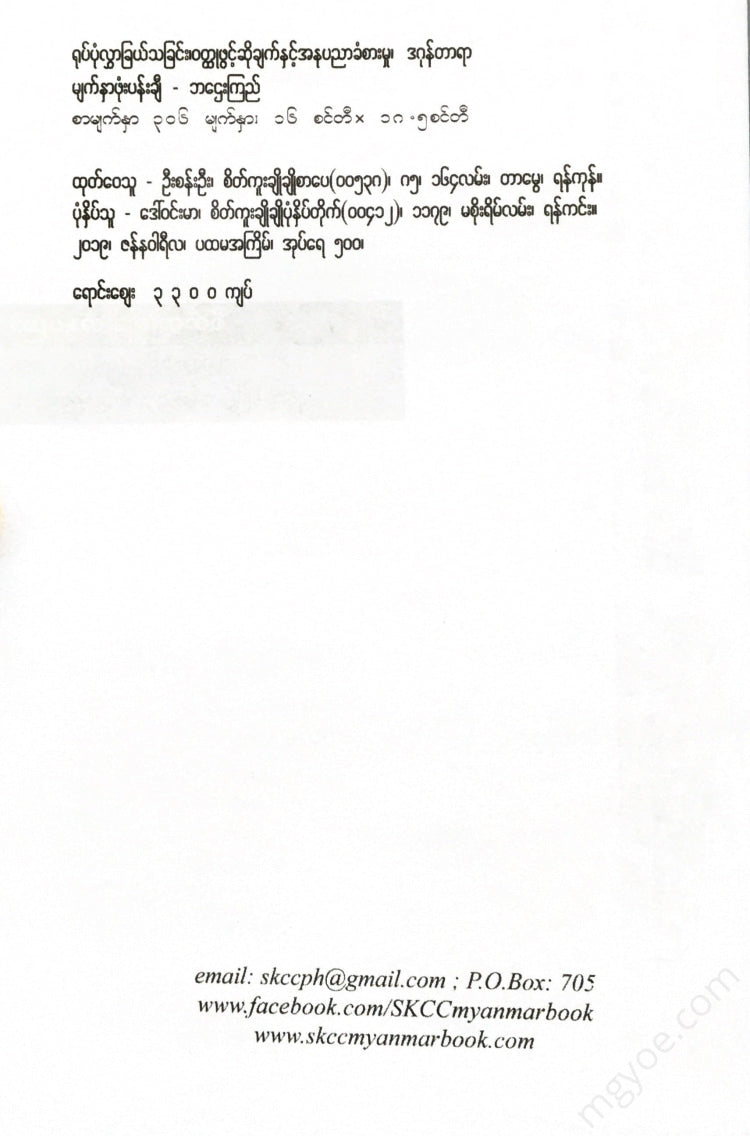 ရုပ်ပုံလွှာခြယ်သခြင်း၊ဝတ္ထုဖွင့်ဆိုချက်နှင့်အနုပညာခံစားမှု၊ ဒဂုန်တာရာ
မျက်နှာဖုံးပန်းချီ - ဘဌေးကြည်
စာမျက်နှာ ၃၀၆ မျက်နှာ၊ ၁၆ စင်တီ× ၁ဂ.၅စင်တီ
ထုတ်ဝေသူ - ဦးစန်းဦး၊ စိတ်ကူးချိုချိုစာပေ(၀၀၅၃ဂ)၊ ဂ၅၊ ၁၆၄လမ်း၊ တာမွေ၊ ရန်ကုန်။
ပုံနှိပ်သူ - ဒေါ်ဝင်းမာ၊ စိတ်ကူးချိုချိုပုံနှိပ်တိုက်(၀၀၄၁၂)၊ ၁၁၇၉၊ မစိုးရိမ်လမ်း၊ ရန်ကင်း။
၂၀၁၉၊ ဇန်နဝါရီလ၊ ပထမအကြိမ်၊ အုပ်ရေ ၅၀၀၊
ရောင်းဈေး ၃ ၃ ၀ ၀ ကျပ်
email: skccph@gmail.com ; P.O.Box: 705
www.facebook.com/SKCCmyanmarbook
www.skccmyanmarbook.com
mgyoe.com